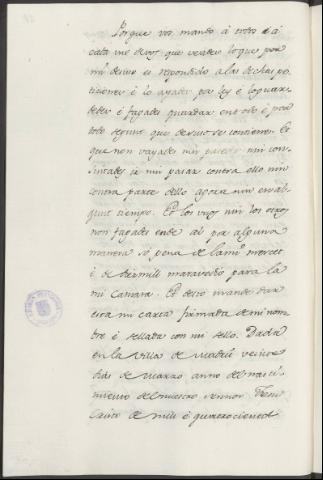 Porque vos mando á todos é á
cada uno de vos que veades lo que por
mi desuso es repondido a las dichas pe-
ticiones é lo ayades por ley é lo guar-
dedes é fagades guardar en todo é por
todo segunt que desuso se contiene. E
que non vayades nin pasedes nin con-
sintades ir nin pasar contra ello nin
contra parte dello agora nin en al-
gunt tiempo. Et los unos nin los otros
non fagades ende al por alguna
manera só pena de la mi mercet
é de diez mill maravedis para la
mi Camara. Et desto mande dar
esta mi carta firmada de mi nom-
bre é sellada con mi sello. Dada
en la Villa de Madrid veinte
dias de Marzo anno del nasci-
miento del nuestro Sennor Jesu
Cristo de mill é quatrocientos